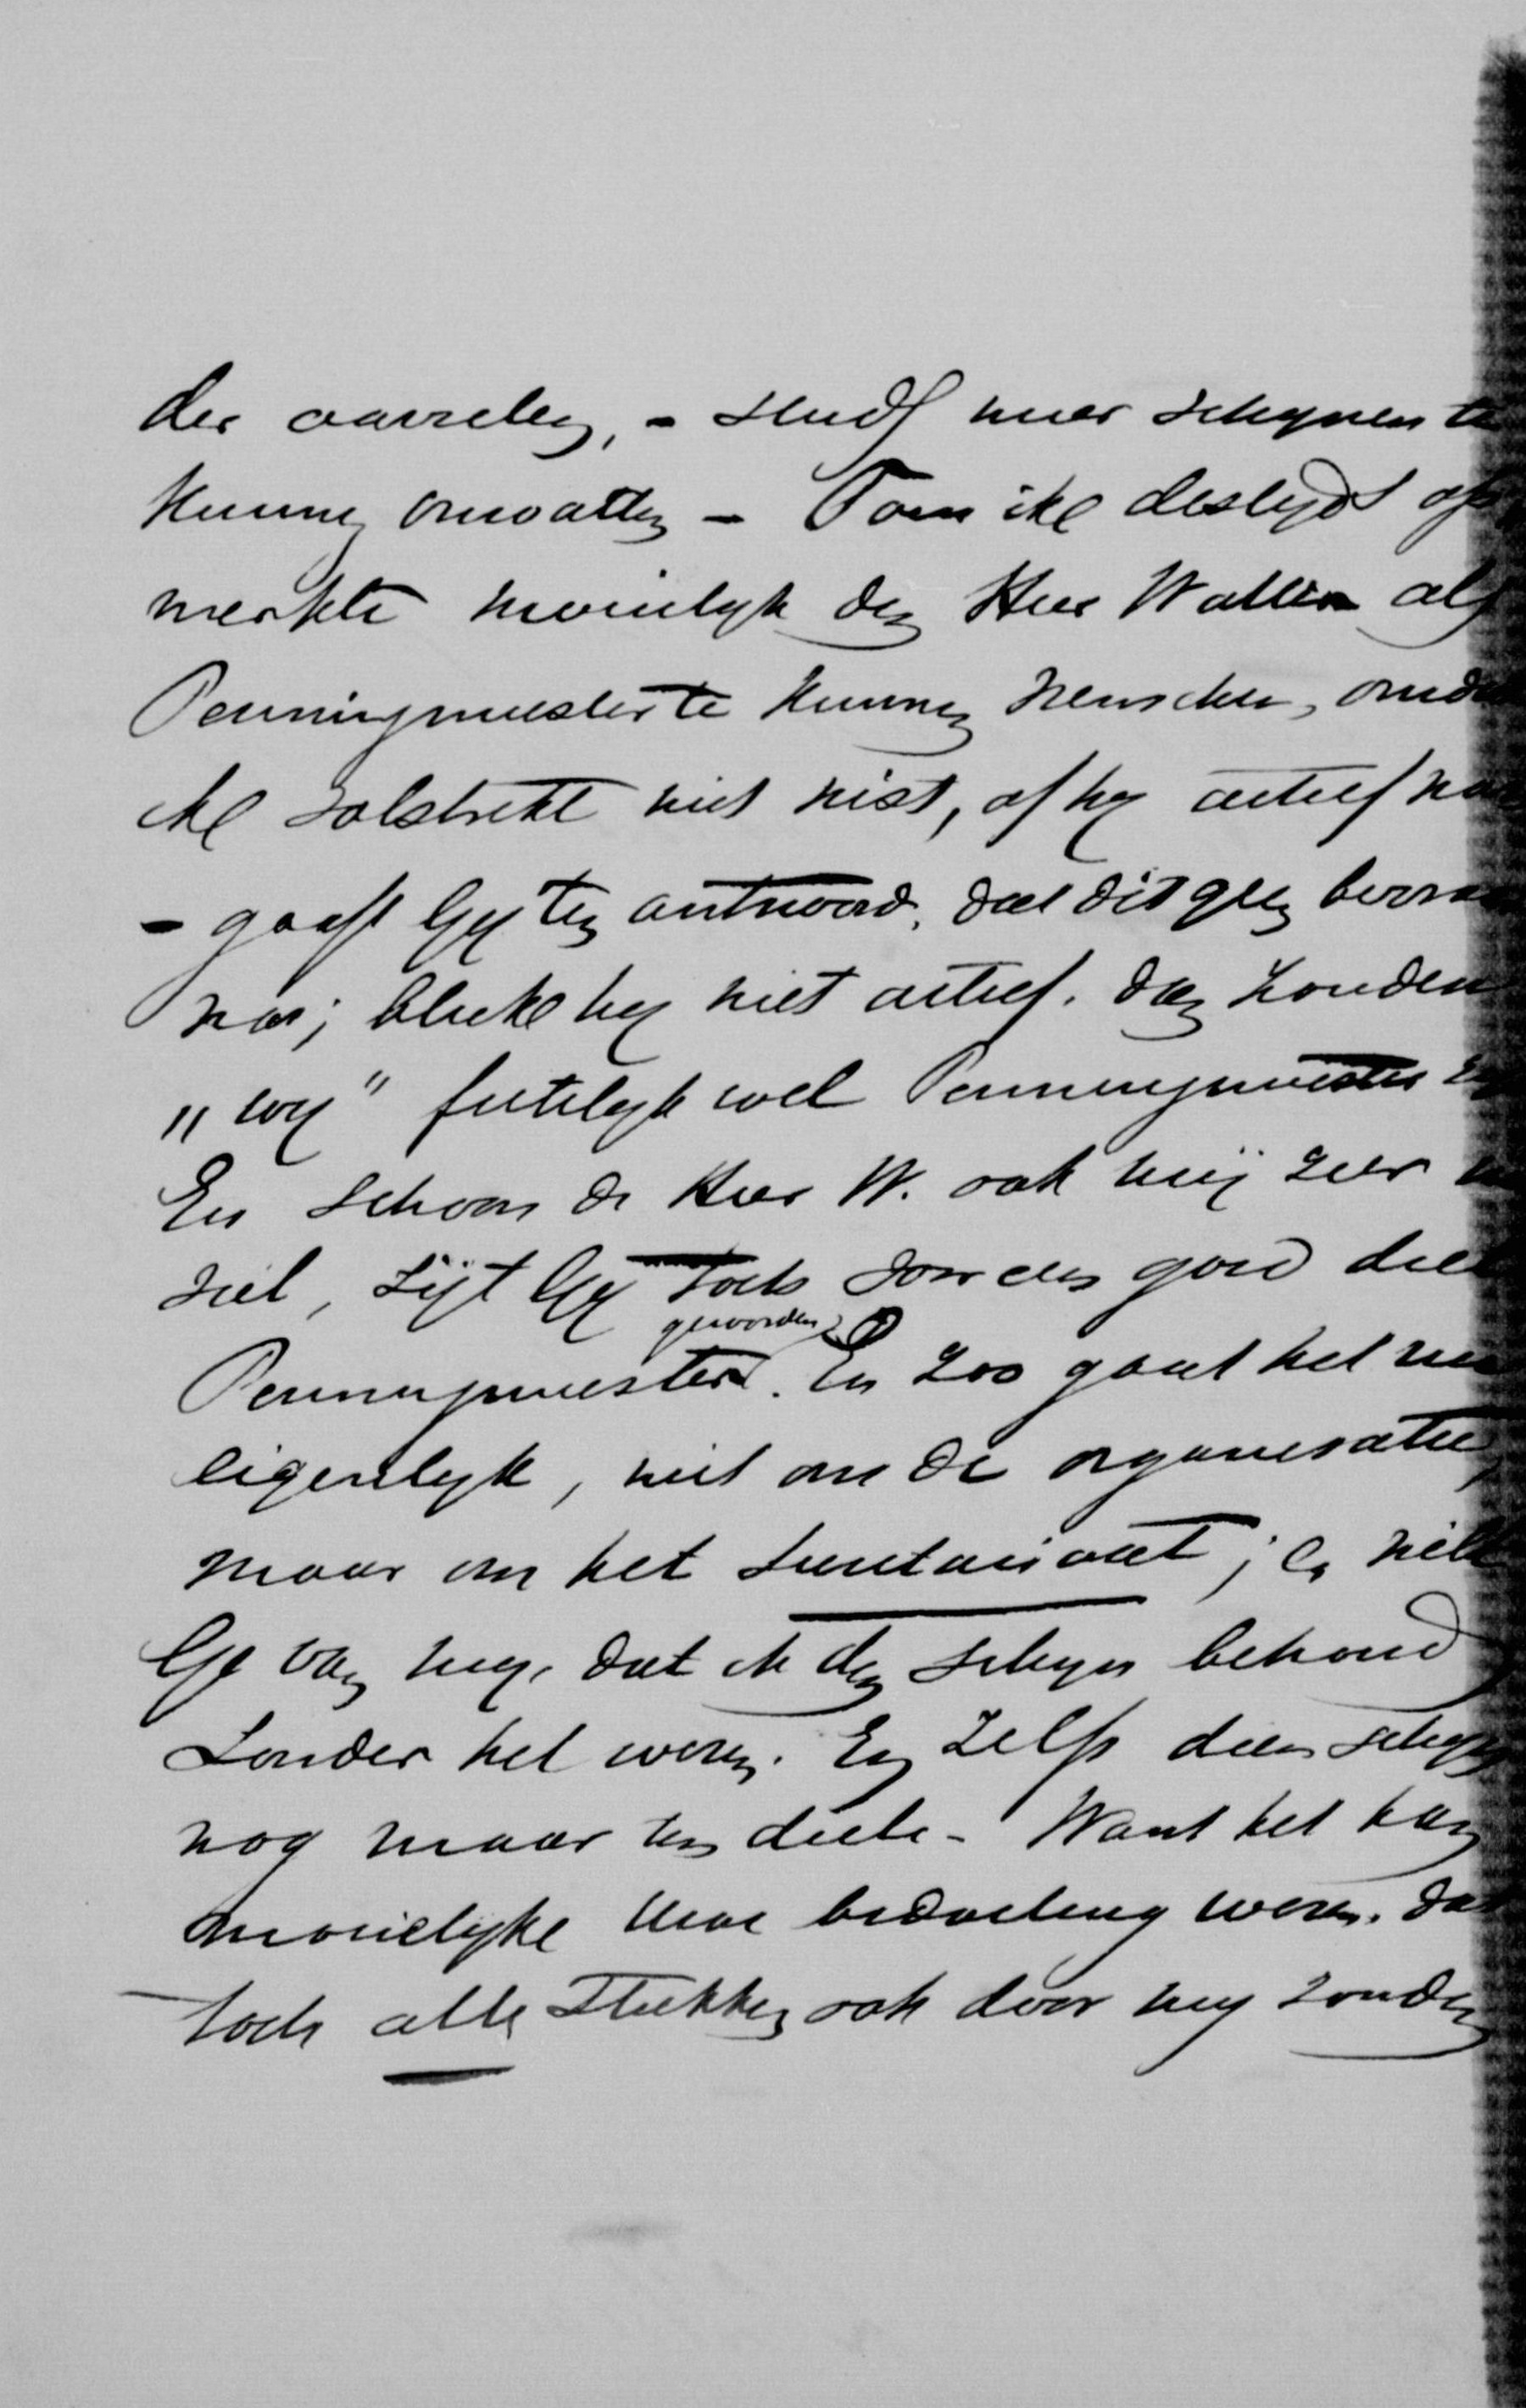 der aarzeling, - steeds meer schynen te
kunnen omvatten - Toen ik destyds op
merkte moeielyk den Heer Waller als
Penningmeester te kunnen wenschen, omdat
ik volstrekt niet wist, of hy actief was
- gaaft Gy ten antwoord, dat dit geen bezwaar
was; bleek hy niet actief, dan zouden
„wy" feitelyk wel Penningmeester zyn
En schoon de Heer W. ook mij zeer
viel, zijt Gy toch voor een goed deel
geworden
Penningmeester. En zoo gaat het nu
eigenlyk, niet om de organisatie,
maar om het Secretariaat; en wilt
Ge van my, dat ik den schyn behoud
zonder het wezen. En zelfs dien schyn
nog maar ten deele - Want het kan
moeielyke Uwe bedoeling wezen, dat
toch alle Stukken ook door my zouden